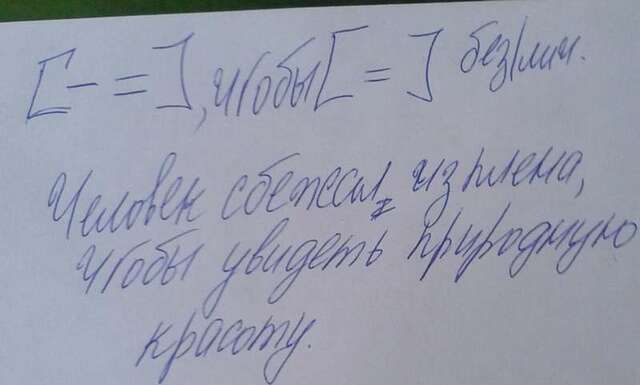 [– =], чтобы [ = ] безл/ич.
Человек сбежал из плена,
чтобы увидеть природную
красоту.